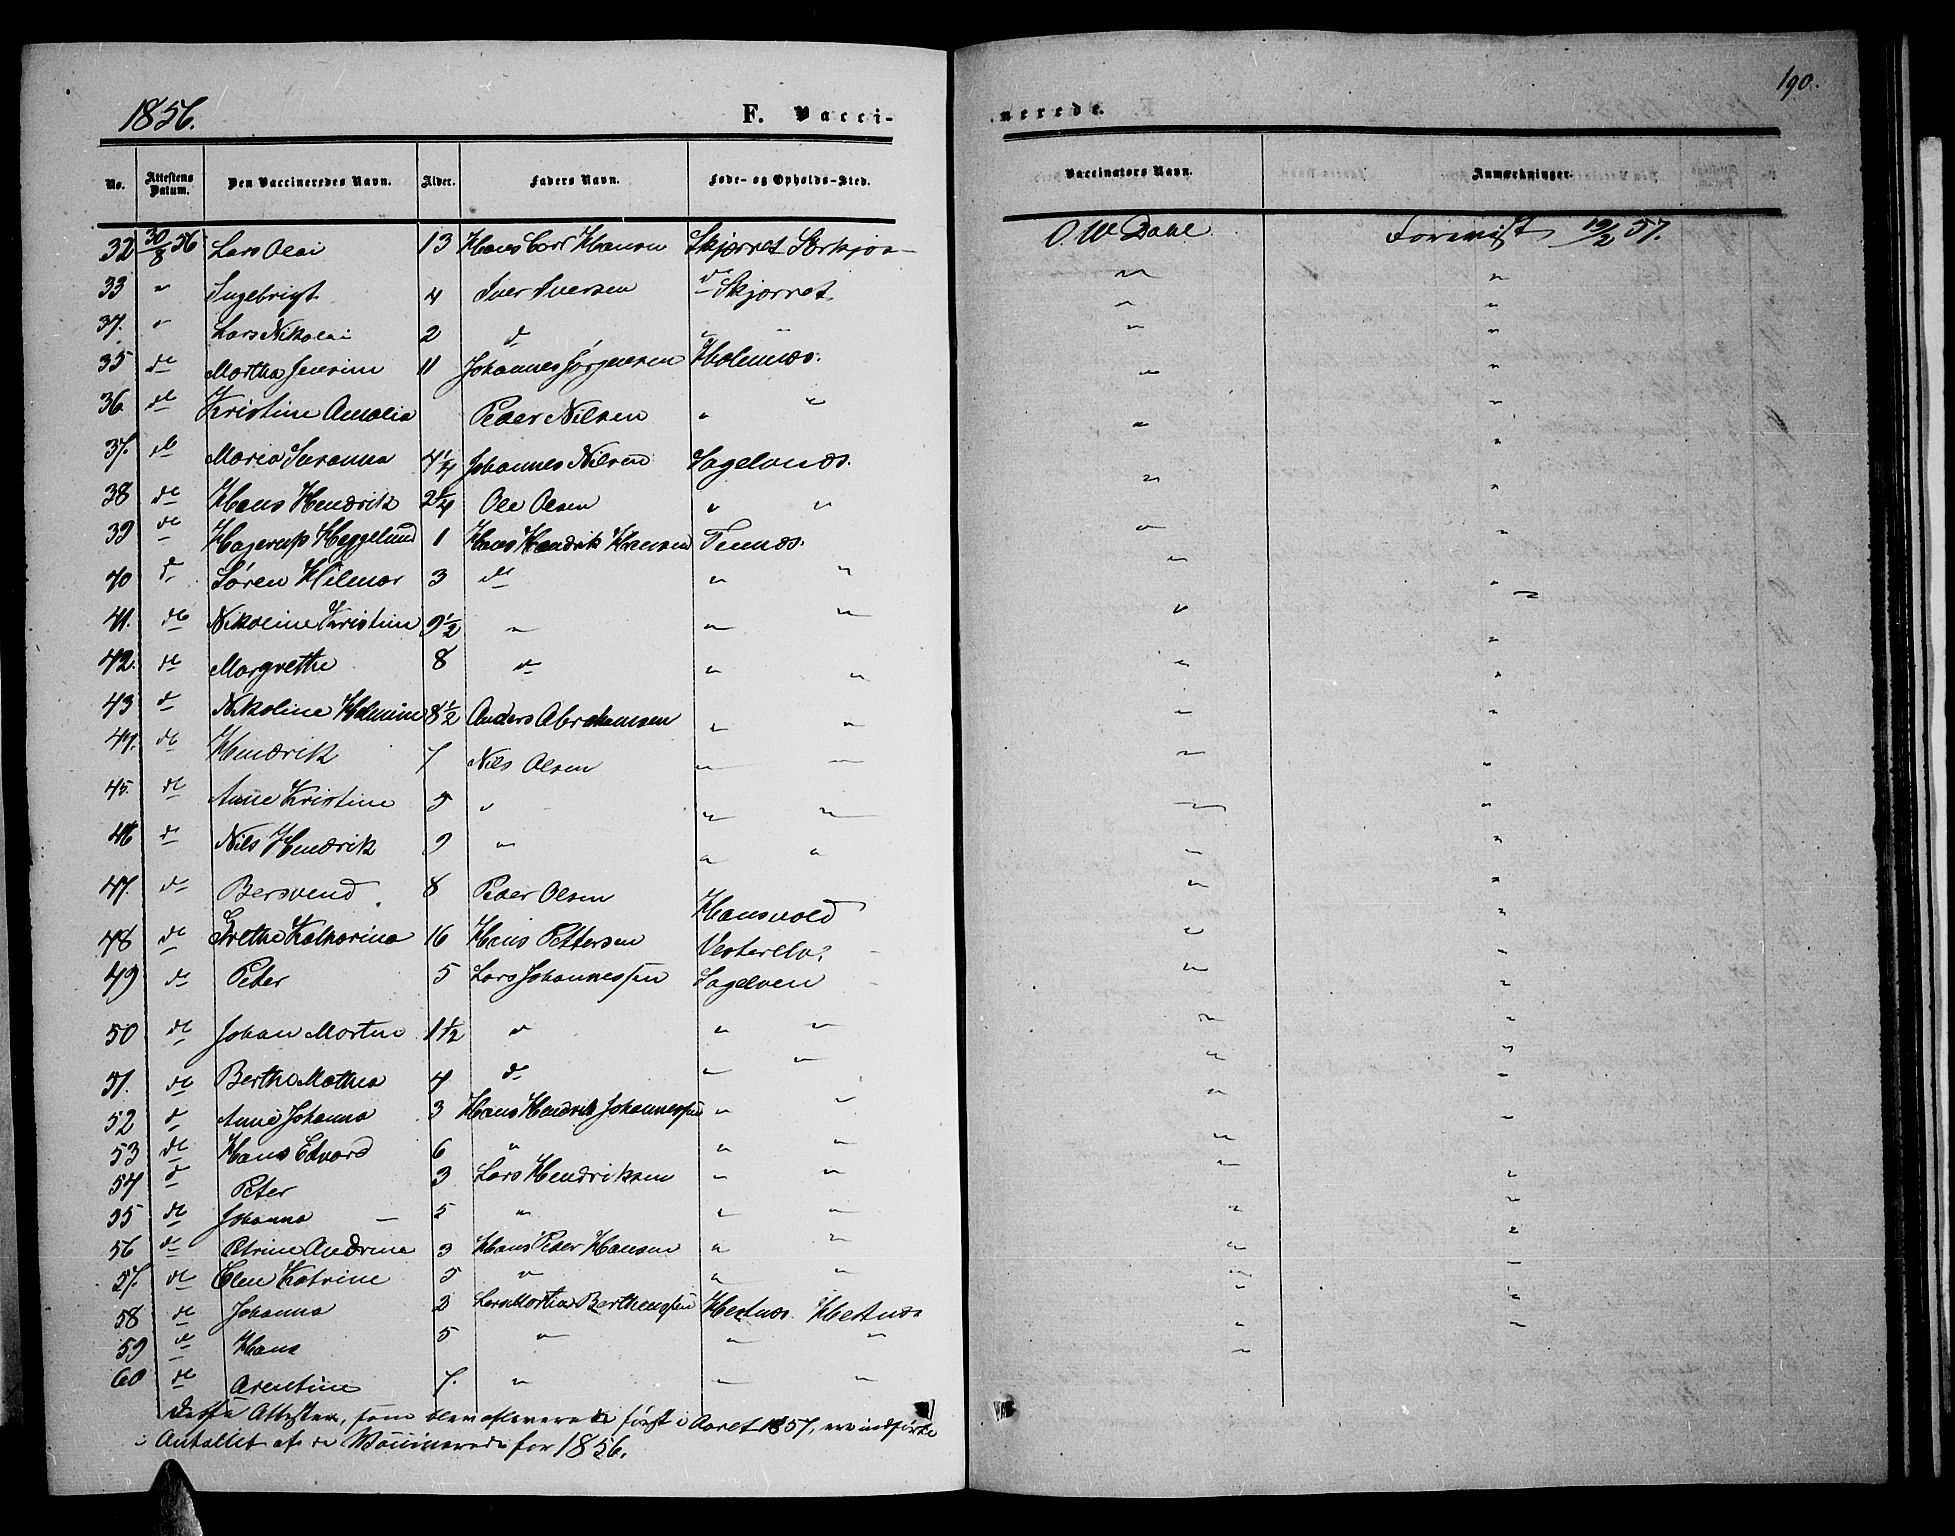 1856.
F. Vacci-
nerede.
190.
No. Attestens Datum. Den Vaccineredes Navn. Alder. Faders Navn. Føde- og Opholds-Sted. Vaccinators Navn. Anmærkninger.
32 30/8 56 Lars Olai 13 Hans Carl Hansen Skjærret O. W. Dahl Forevist 12/2 57.
33 " Ingebrigt 4 Iver Iversen do Skjærret " "
34. " Lars Nikolai 2 do " " " "
35 do Martha Jensine 11 Johannes Jørgensen Holmnæs. " "
36. do Kristine Amalia Peder Nilsen " " " "
37. do Maria Susanna 4 1/4 Johannes Nilsen Sagelvnæs. " "
38 do Hans Hendrik 2 1/4 Ole Olsen " " " "
39 do Hagerup Heggelund 1 Hans Hendrik Hansen Tennæs. " "
40 do Søren Hilmar 3 do " " " "
41. do Nikoline Kristine 9 1/2 " " " " "
42. do Margrethe 8 do " " " "
43 do Nikoline Holmine 8 1/2 Anders Abrahamsen " " " "
44. do Hendrik 7 Nils Olsen " " " "
45. do Anne Kristine 5 " " " " "
46 do Nils Hendrik 9 " " " " "
47. do Bersvend 8 Peder Olsen Hansvold " "
48 do Grethe Katharina 16 Hans Pettersen Vesterelv " "
49 do Peter 5 Lars Johannessen Sagelven " "
50 do Johan Martin 1 1/2 do " " " "
51. do Bertha Mathea 4 do " " " "
52 do Anne Johanna 3 Hans Hendrik Johannessen " " " "
53 do Hans Edvard 6 " " " " "
54 do Peter 3 Lars Hendriksen " " " "
55 do Johanna 5 " " " " "
56 do Petrine Andrine 3 Hans Peder Hansen " " " "
57. do Elen Katrine 5 " " " " "
58 do Johanna 2 Lars Martin Berthenssen Hestnæs. Hestnæs " "
59 do Hans 5 " " " " "
60 do Arentine 7. " " " "
Disse Attester, som blev afleverede først i Aaret 1857, ere indførte
i Antallet af de Vaccinerede for 1856.